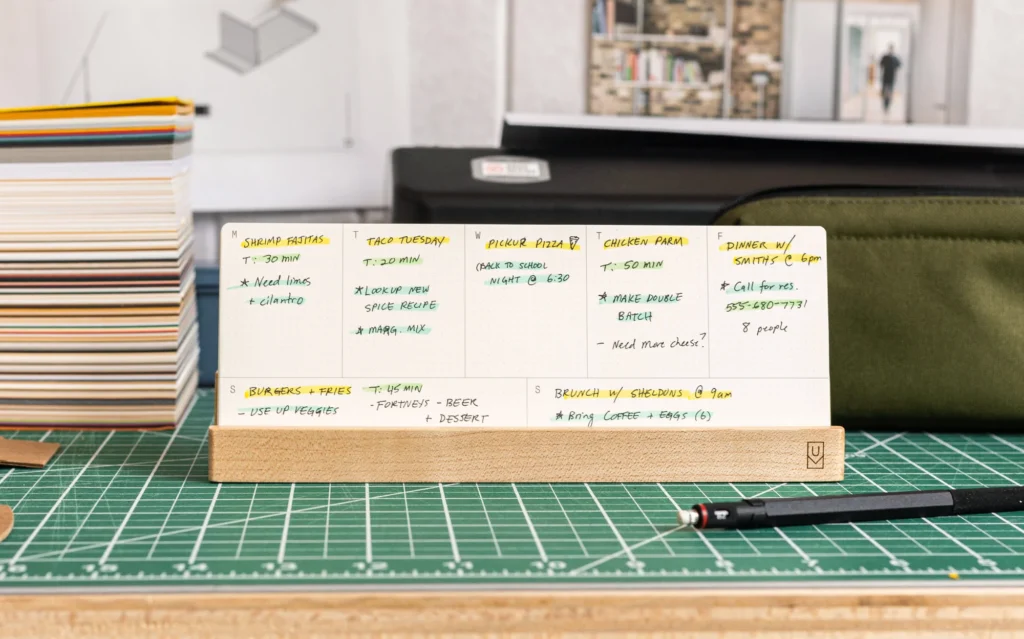 M
SHRIMP FAJITAS
T: 30 MIN
* Need limes
+ cilantro
T
TACO TUESDAY
T: 20 MIN
* LOOKUP NEW
SPICE RECIPE
* MARG. MIX
W
PICKUP PIZZA
(BACK TO SCHOOL
NIGHT @ 6:30
T
CHICKEN PARM
T: 50 MIN
* MAKE DOUBLE
BATCH
- Need more cheese?
F
DINNER W/
SMITHS @ 6pm
* Call for res.
555-680-7731
8 people
S
BURGERS + FRIES T: 45 MIN
- USE UP VEGGIES
- FORTNEYS - BEER
+ DESSERT
S
BRUNCH W/ SHELDONS @ 9am
* Bring COFFEE + EGGS (6)
U
15 14 13 12 11 10 9 8 7 6